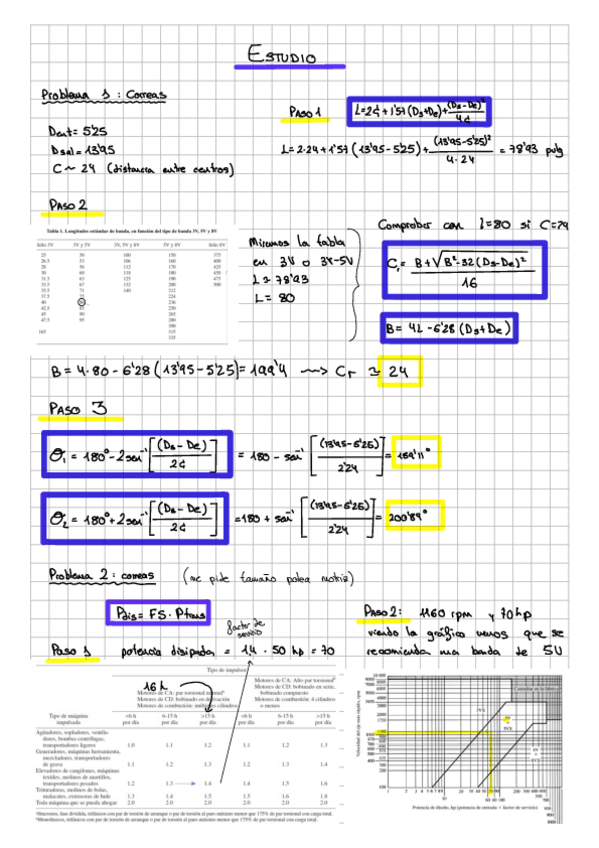 ESTUDIO
Problema 1 : Correas
PASO 1
L=2C+1'57(Ds+De)+(Ds-De)²/4C
Dent= 5'25
Dsal= 13'95
C ~ 24 (distancia entre centros)
L= 2·24+1'57(13'95-5'25)+(13'95-5'25)²/4·24 = 78'93 pulg
PASO 2
Tabla 1. Longitudes estándar de banda, en función del tipo de banda 3V, 5V y 8V
Sólo 3V 3V y 5V 3V, 5V y 8V 5V y 8V Sólo 8V
25 50 100 150 375
26.5 53 106 160 400
28 56 112 170 425
30 60 118 180 450
31.5 63 125 190 475
33.5 67 132 200 500
35.5 71 140 212
37.5 224
40 236
42.5 250
45 90 265
47.5 95 280
300
165 315
335
Miramos la tabla
en 3V o 3V-5V
L ≃ 78'93
L = 80
Comprobar con l=80 si C=24
Cr = B+√B²-32(Ds-De)²/16
B= 4L-6'28(Ds+De)
B = 4·80 - 6'28(13'95-5'25)= 199'4 ⟶ Cr ≃ 24
PASO 3
Θ₁ = 180°-2sen⁻¹[(Ds-De)/2C] = 180 - sen⁻¹[(13'95-5'25)/2'24] = 159'11°
Θ₂ = 180°+2sen⁻¹[(Ds-De)/2C] =180 + sen⁻¹[(13'95-5'25)/2'24] = 200'89°
Problema 2 : correas (me pide tamaño polea motriz)
Pdis= FS · Ptrans
factor de
servicio
Paso 1 potencia disipada = 1,4 · 50 hp = 70
Paso 2: 1160 rpm y 70 hp
viendo la gráfica vemos que se
recomienda una banda de 5V
Tipo de impulsor
16 h
Motores de CA: par torsional normalª
Motores de CD: bobinado en derivación
Motores de combustión: múltiples cilindros
Motores de CA: Alto par torsionalᵇ
Motores de CD: bobinado en serie,
bobinado compuesto
Motores de combustión: 4 cilindros
o menos
Tipo de máquina impulsada <6 h por día 6-15 h por día >15 h por día <6 h por día 6-15 h por día >15 h por día
Agitadores, sopladores, ventiladores, bombas centrífugas,
transportadores ligeros 1.0 1.1 1.2 1.1 1.2 1.3
Generadores, máquinas herramienta,
mezcladores, transportadores
de grava 1.1 1.2 1.3 1.2 1.3 1.4
Elevadores de cangilones, máquinas
textiles, molinos de martillos,
transportadores pesados 1.2 1.3 1.4 1.4 1.5 1.6
Trituradoras, molinos de bolas,
malacates, extrusoras de hule 1.3 1.4 1.5 1.5 1.6 1.8
Toda máquina que se pueda ahogar 2.0 2.0 2.0 2.0 2.0 2.0
ªSíncronos, fase dividida, trifásicos con par de torsión de arranque o par de torsión al paro máximo menor que 175% de par torsional con carga total.
Velocidad del eje más rápido, rpm
Consultar en la fábrica
Potencia de diseño, hp (potencia de entrada × factor de servicio)